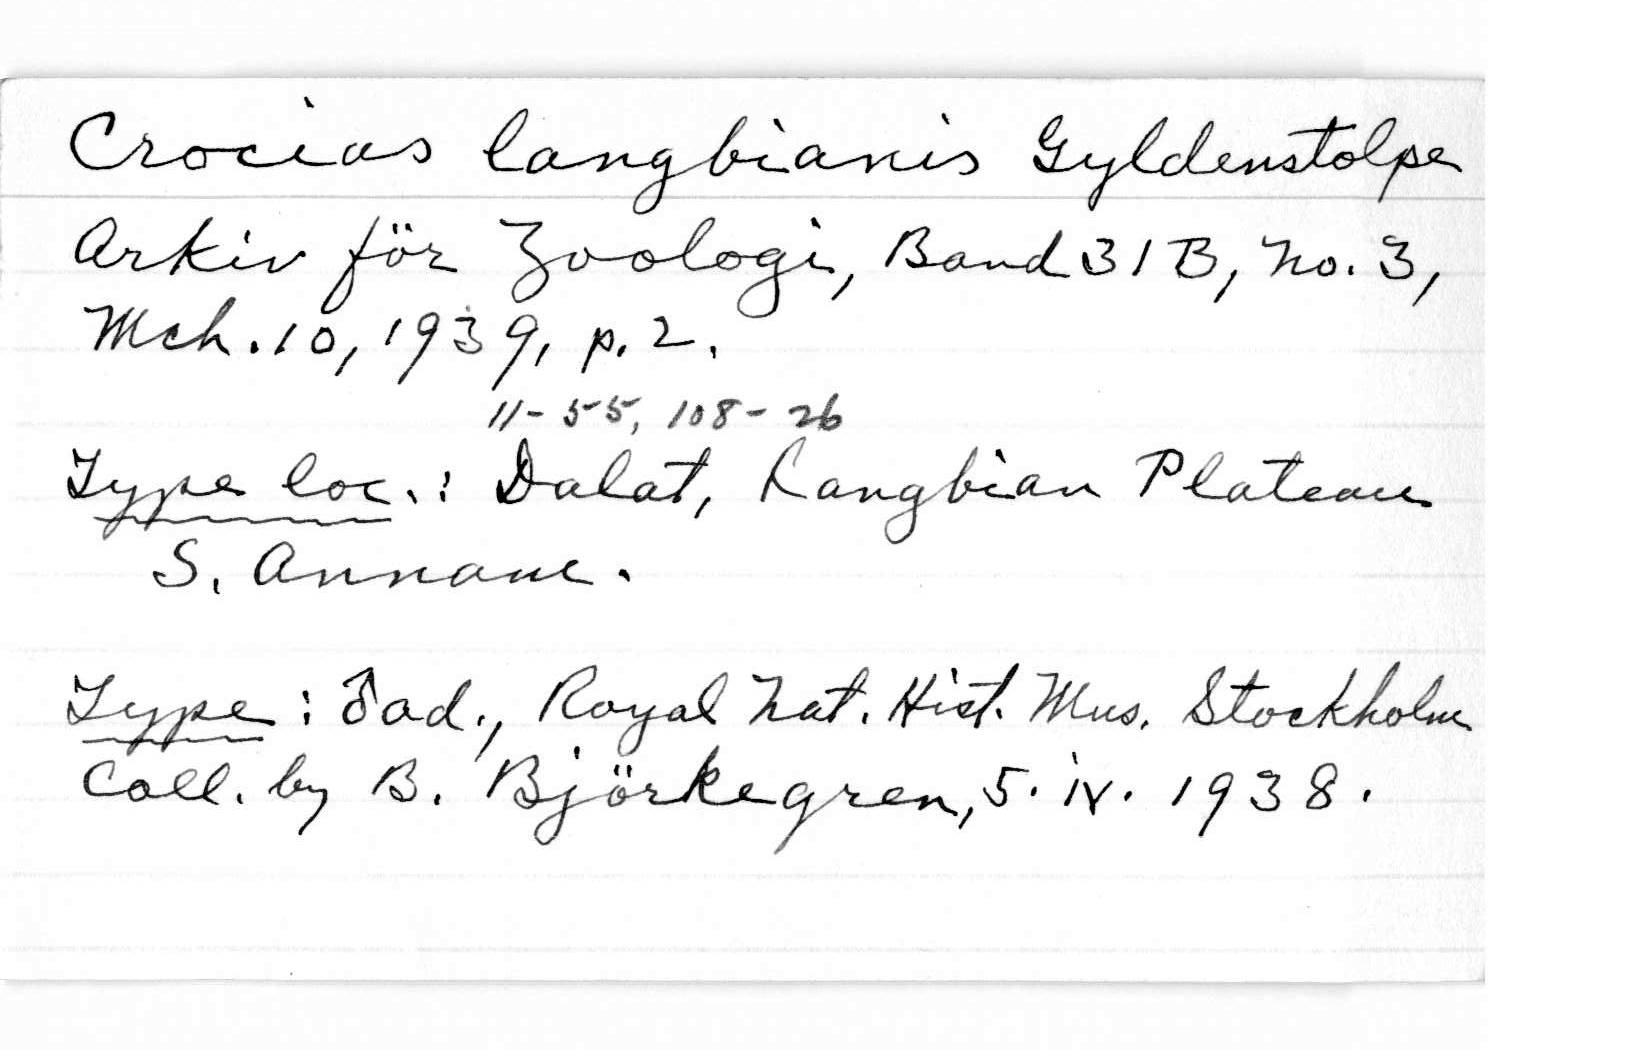 Crocias langbianis Gyldenstolpe
Arkiv för Zoologi, Band 31 B, No. 3,
Mch. 10, 1939, p. 2.
11-55, 108-26
Type loc.: Dalat, Langbian Plateau
S. Annam.
Type: ♂ ad., Royal Nat. Hist. Mus. Stockholm
Coll. by B. Björkegren, 5. iv. 1938.